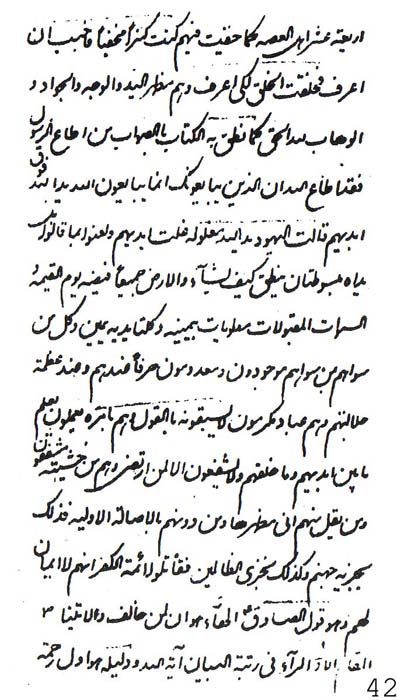 اربعة عشر اهل العصمة كما حققت فيهم كنت كنزاً مخفياً فاحببت ان
اعرف فخلقت الخلق لكي اعرف وهم مظهر اليد والوجه والجواد و
الوهاب يد الحق كما نطق به الكتاب بالصواب من اطاع الرسول
فقد اطاع الله ان الذين يبايعونك انما يبايعون الله يد الله فوق
ايديهم قالت اليهود يد الله مغلولة غلت ايديهم ولعنوا بما قالوا بل
يداه مبسوطتان ينفق كيف يشآء والارض جميعاً قبضته يوم القيمة و
السموات مطويات بيمينه وكلتا يديه يمين وكل من
سواهم من سواهم موجودون و صرفاً عندهم وعند عظمة
جلالتهم وهم عباد مكرمون لا يسبقونه بالقول وهم بامره يعملون يعلم
ما بين ايديهم وما خلفهم ولا يشفعون الا لمن ارتضى وهم من خشيته مشفقون
ومن يقل منهم انى مظهرها من دونهم بالاصالة الاولية فذلك
نجزيه جهنم وكذلك نجزى الظالمين فقاتلوا ائمة الكفر انهم لا ايمان
لهم وهو قول الصادق
فى رتبة البيان آية الله ودليله هو اول
42